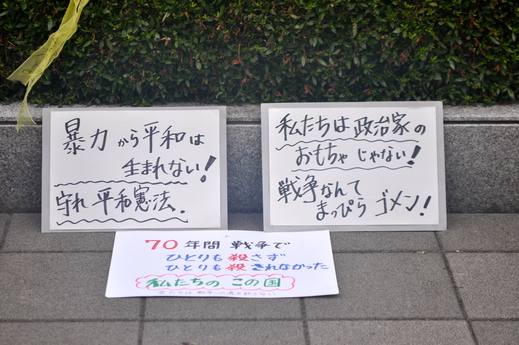 暴力から平和は
生まれない!
守れ平和憲法.
私たちは政治家の
おもちゃじゃない!
戦争なんて
まっぴらゴメン!
70年間戦争で
ひとりも殺さず
ひとりも殺されなかった
私たちのこの国